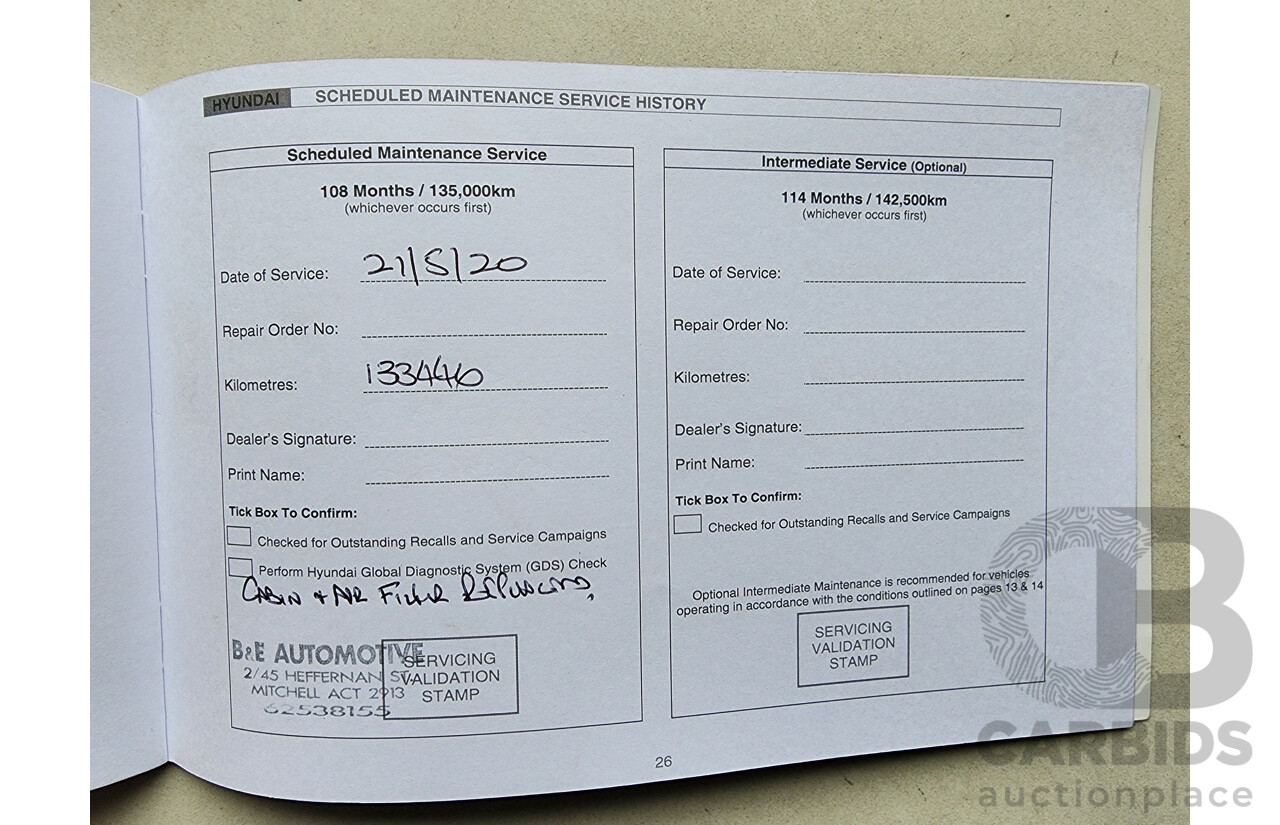 HYUNDAI SCHEDULED MAINTENANCE SERVICE HISTORY
Scheduled Maintenance Service
108 Months / 135,000km
(whichever occurs first)
Date of Service: 21/5/20
Repair Order No:
Kilometres: 133440
Dealer's Signature:
Print Name:
Tick Box To Confirm:
Checked for Outstanding Recalls and Service Campaigns
Perform Hyundai Global Diagnostic System (GDS) Check
CABIN + AIR FILTER REPLACED,
B&E AUTOMOTIVE
2/45 HEFFERNAN ST
MITCHELL ACT 2913
62538155
SERVICING
VALIDATION
STAMP
Intermediate Service (Optional)
114 Months / 142,500km
(whichever occurs first)
Date of Service:
Repair Order No:
Kilometres:
Dealer's Signature:
Print Name:
Tick Box To Confirm:
Checked for Outstanding Recalls and Service Campaigns
Optional Intermediate Maintenance is recommended for vehicles
operating in accordance with the conditions outlined on pages 13 & 14
SERVICING
VALIDATION
STAMP
26
CB
CARBIDS
auctionplace